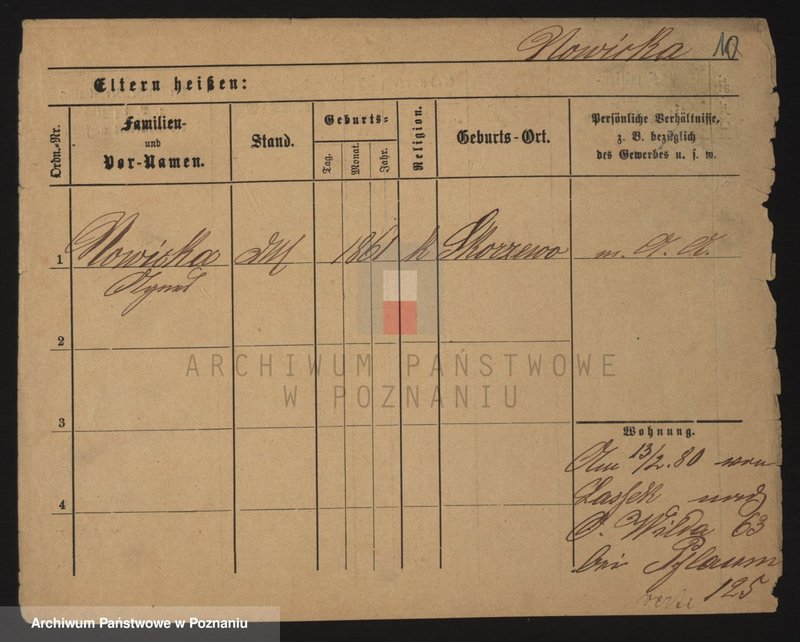 Nowicka 10
Eltern heißen:
Ordn.-Nr.
Familien-
und
Vor-Namen.
Stand.
Geburts-
Tag.
Monat.
Jahr.
Religion.
Geburts-Ort.
Persönliche Verhältnisse,
z. B. bezüglich
des Gewerbes u. s. w.
1 Nowicka 1861 k Skorzewo m. A. A.
Agnes
2
3
4
Wohnung.
Am 13/2. 80 von
Lassek nach
O. Wilda 63
bei Pflaum
125
verte
ARCHIWUM PAŃSTWOWE
W POZNANIU
Archiwum Państwowe w Poznaniu